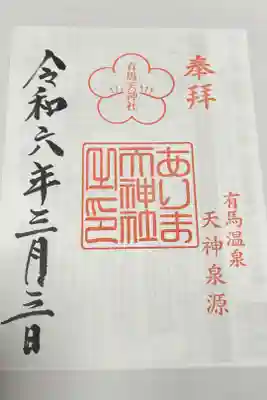 奉拝
有馬温泉
天神泉源
有馬天神社
ありま
天神社
之印
令和六年三月三日